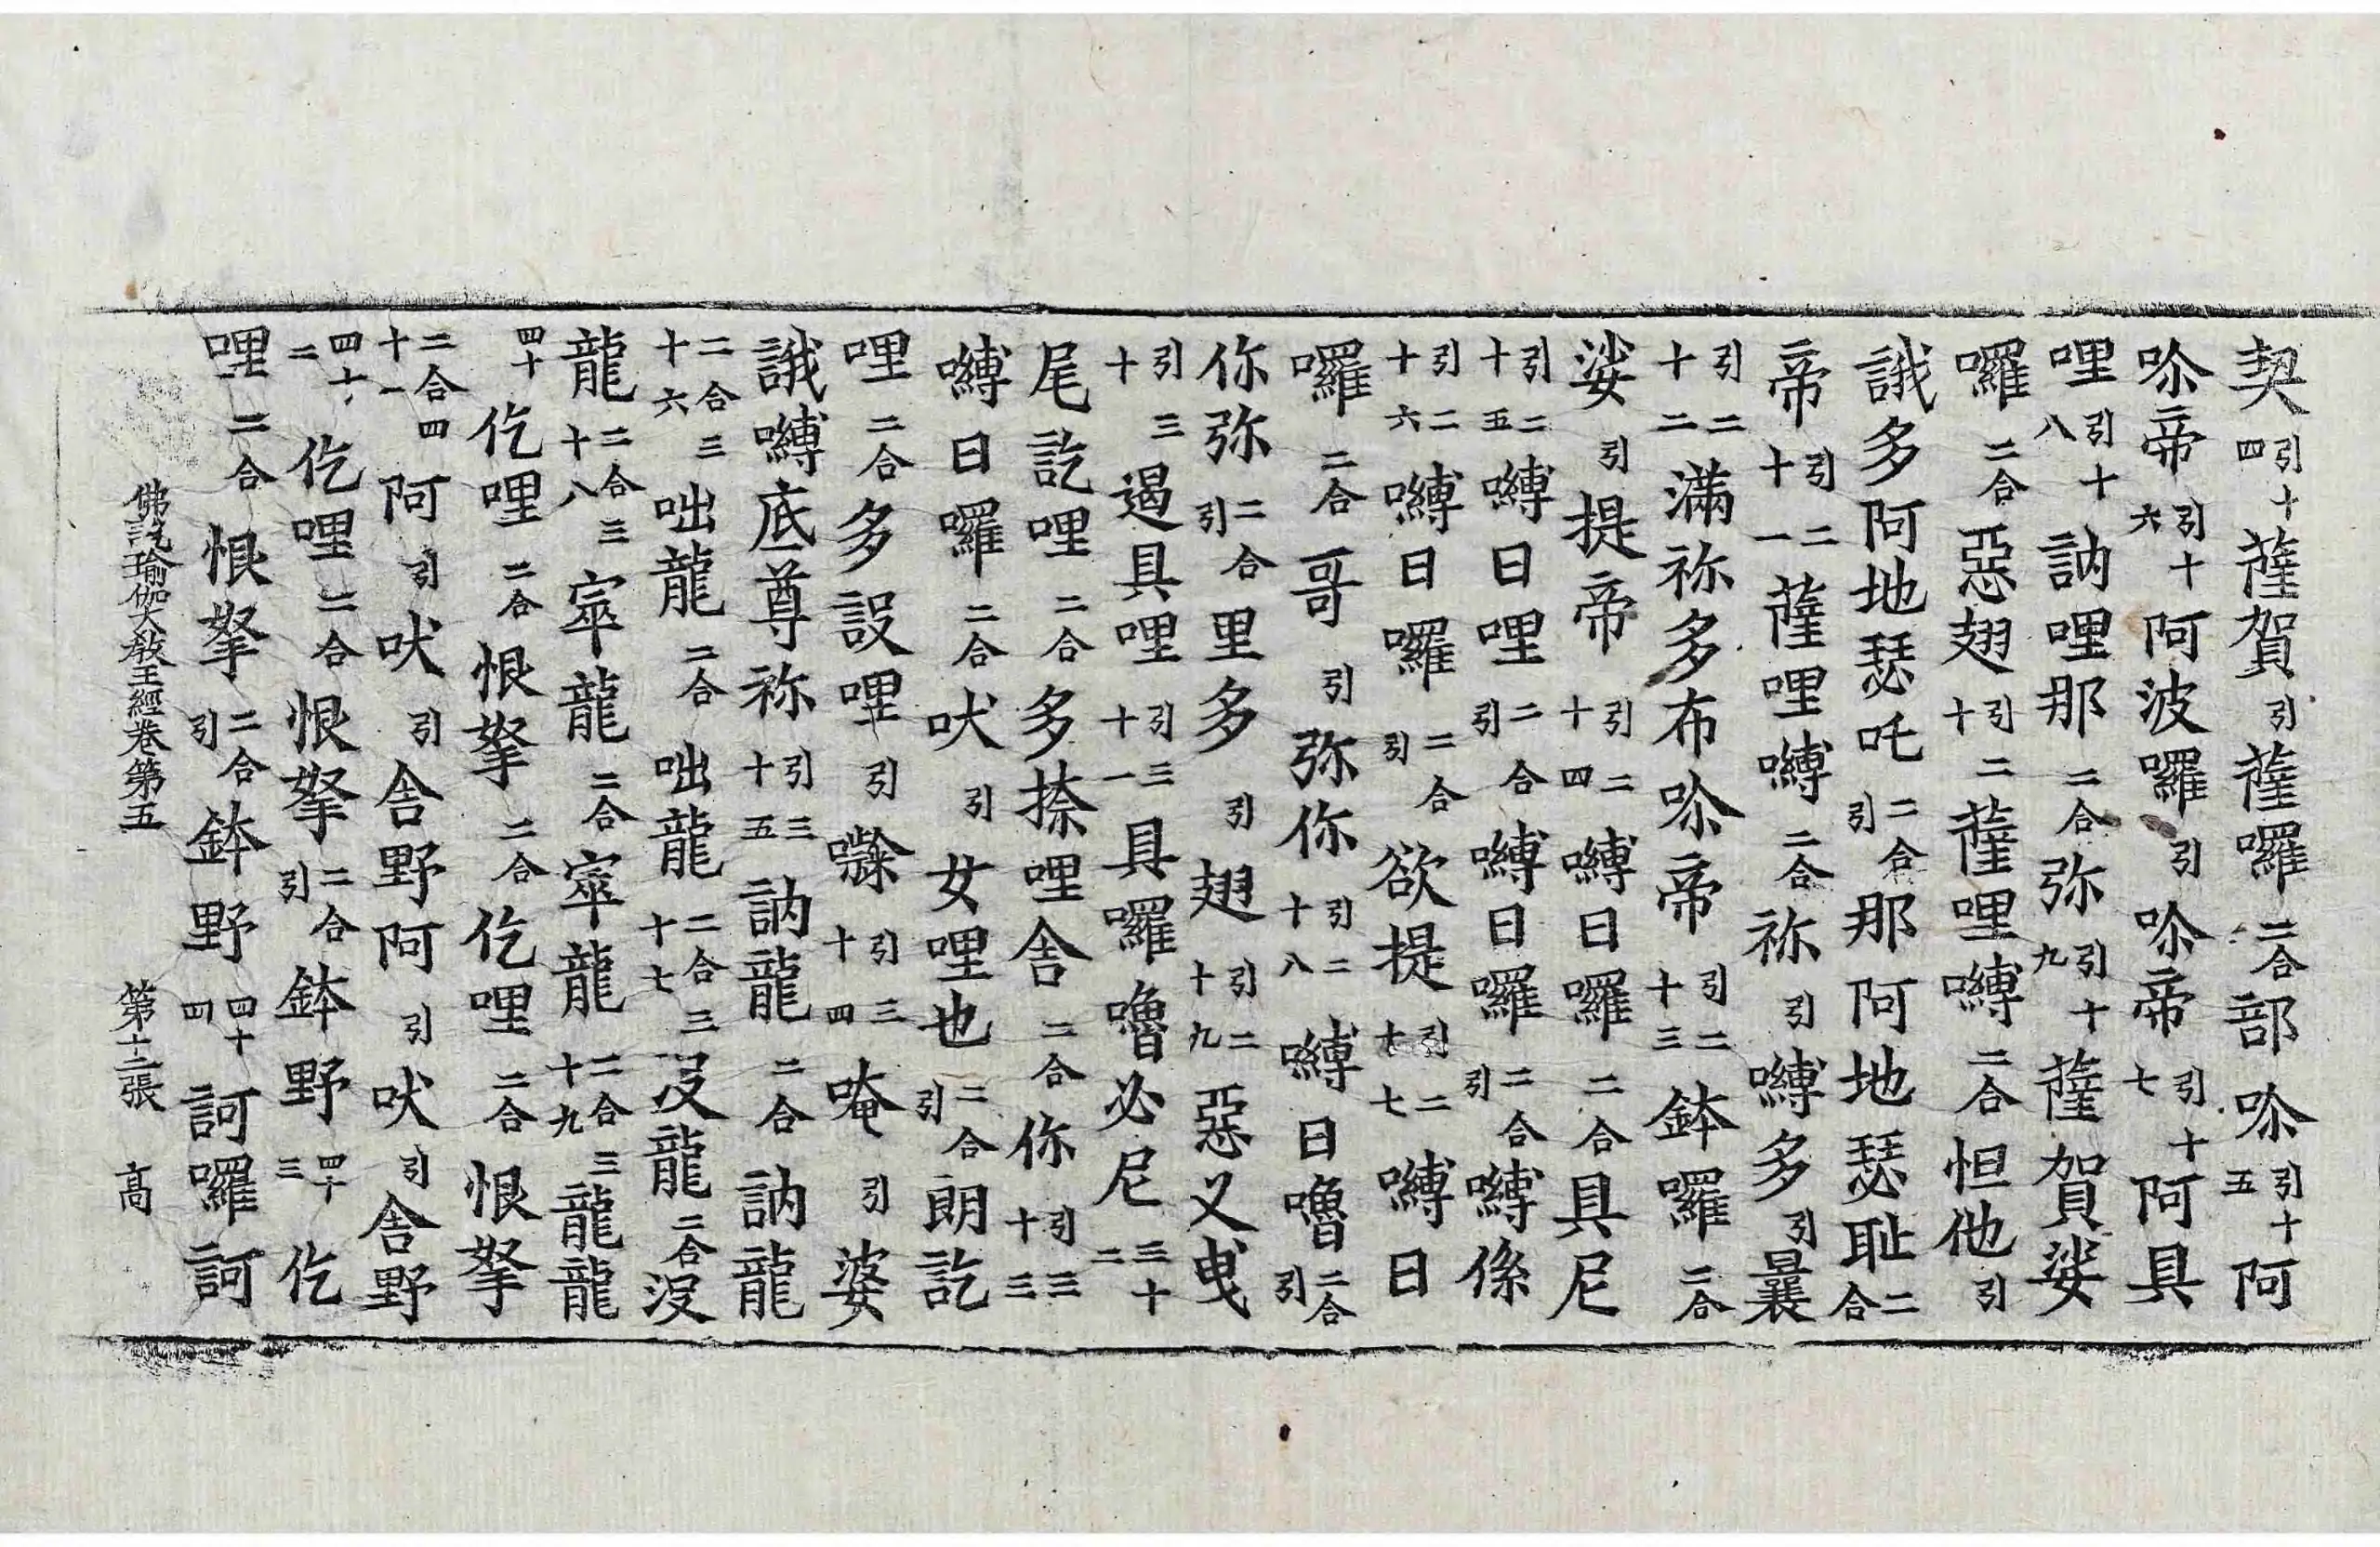 契引十四薩賀引薩囉二合部唹引十五阿
唹帝引十六阿波囉引唹帝引十七阿具
哩引十八訥哩那二合弥引十九薩賀娑
囉二合惡翅引二十薩哩嚩二合怛他引
誐多阿地瑟吒二合引那阿地瑟耻二合
帝引二十一薩哩嚩二合祢引嚩多引曩
引二十二滿祢多布唹帝引二十三鉢囉二合
娑引提帝引二十四嚩日囉二合具尼
引二十五嚩日哩二合引嚩日囉二合引嚩係
引二十六嚩日囉二合引欲提引二十七嚩日
囉二合哥引弥你引二十八嚩日嚕二合引
你弥二合引里多引翅引二十九惡叉曳
引三十遏具哩引三十一具囉嚕必尼三十二
尾訖哩二合多捺哩舍二合你引三十三
嚩日囉二合吠引女哩也二合引朗訖
哩二合多設哩引引三十四唵引婆
誐嚩底尊祢引三十五訥龍二合訥龍
二合三十六咄龍二合咄龍二合三十七沒龍二合沒
龍二合三十八寧龍二合寧龍二合三十九龍龍
四十仡哩二合恨拏二合仡哩二合恨拏
二合四十一阿引吠引舍野阿引吠引舍野
四十二仡哩二合恨拏二合引鉢野四十三仡
哩二合恨拏二合引鉢野四十四訶囉訶
佛說瑜伽大教王經卷第五 第十二張 高